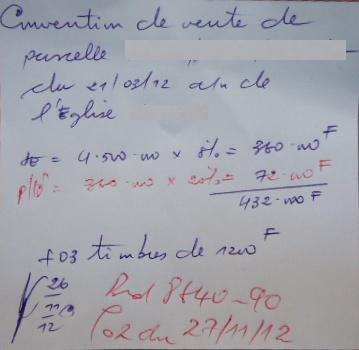 Convention de vente de
parcelle
du 21/03/12 a/n de
l'Eglise
= 4.500.000 x 8% = 360.000 F
= 360.000 x 20% = 72.000 F
432.000 F
+ 03 timbres de 1200 F
26
11
12
8540-90
du 27/11/12